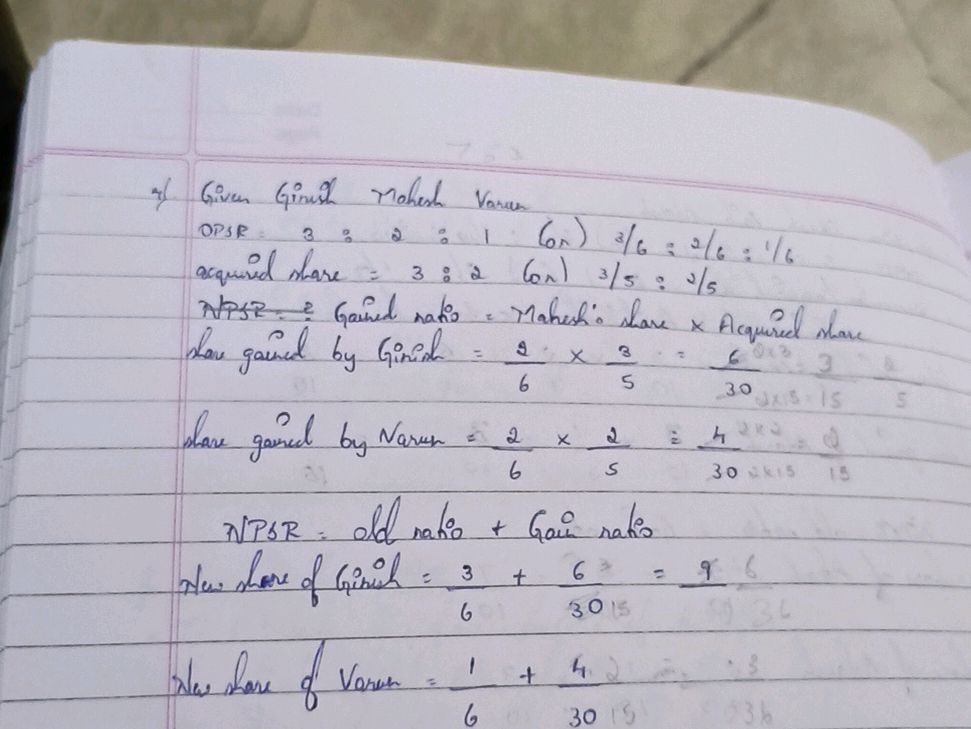 Given Girish Mahesh Varun
OPSR = 3 : 2 : 1 (or) 3/6 : 2/6 : 1/6
acquired share = 3 : 2 (or) 3/5 : 2/5
NPSR = Gained ratio = Mahesh's share × Acquired share
share gained by Girish = 2/6 × 3/5 = 6/30
share gained by Narun = 2/6 × 2/5 = 4/30
NPSR = old ratio + Gain ratio
New share of Girish = 3/6 + 6/30 = 9
New share of Varun = 1/6 + 4/30